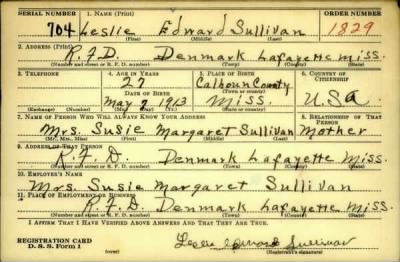 SERIAL NUMBER 1. NAME (Print) ORDER NUMBER
704 Leslie Edward Sullivan 1829
(First) (Middle) (Last)
2. ADDRESS (Print)
R.F.D. Denmark Lafayette Miss.
(Number and street or R. F. D. number) (Town) (County) (State)
3. TELEPHONE 4. AGE IN YEARS 5. PLACE OF BIRTH 6. COUNTRY OF CITIZENSHIP
27 Calhoun County
DATE OF BIRTH (Town or county)
May 2 1913 Miss. U.S.A
(Exchange) (Number) (Mo.) (Day) (Yr.) (State or country)
7. NAME OF PERSON WHO WILL ALWAYS KNOW YOUR ADDRESS 8. RELATIONSHIP OF THAT PERSON
Mrs. Susie Margaret Sullivan Mother
(Mr., Mrs., Miss) (First) (Middle) (Last)
9. ADDRESS OF THAT PERSON
R.F.D. Denmark Lafayette Miss.
(Number and street or R. F. D. number) (Town) (County) (State)
10. EMPLOYER'S NAME
Mrs. Susie Margaret Sullivan
11. PLACE OF EMPLOYMENT OR BUSINESS
R.F.D. Denmark Lafayette Miss.
(Number and street or R. F. D. number) (Town) (County) (State)
I AFFIRM THAT I HAVE VERIFIED ABOVE ANSWERS AND THAT THEY ARE TRUE.
REGISTRATION CARD
D. S. S. Form 1 (over) Leslie Edward Sullivan
(Registrant's signature)